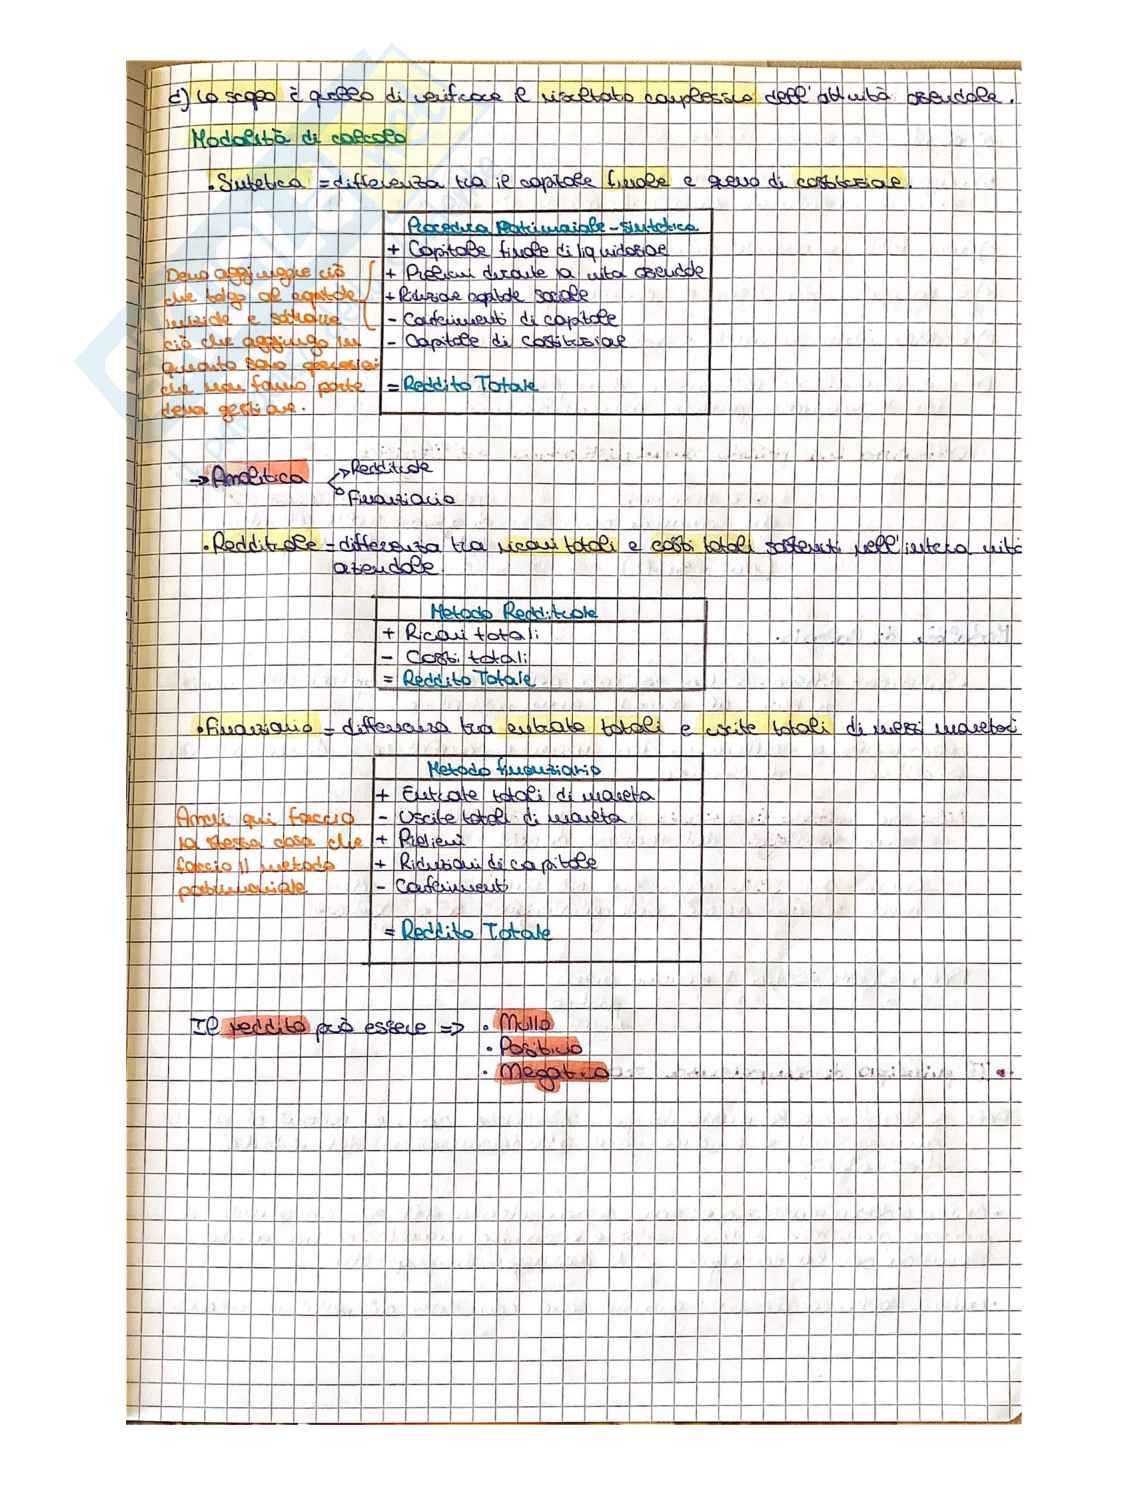 c) Lo scopo è quello di verificare il risultato complessivo dell'attività aziendale.
Modalità di calcolo
• Sintetica = differenza tra il capitale finale e quello di costituzione.
Procedura Patrimoniale - sintetica
+ Capitale finale di liquidazione
+ Prelievi durante la vita aziendale
+ Riduzione capitale sociale
- Conferimenti di capitale
- Capitale di costituzione
= Reddito Totale
Devo aggiungere ciò
che tolgo al capitale
iniziale e sottrarre
ciò che aggiungo in
quanto sono operazioni
che non fanno parte
della gestione.
→ Analitica
→ Reddituale
→ Finanziario
• Reddituale = differenza tra ricavi totali e costi totali sostenuti nell'intera vita
aziendale
Metodo Reddituale
+ Ricavi totali
- Costi totali
= Reddito Totale
• Finanziario = differenza tra entrate totali e uscite totali di mezzi monetari
Metodo finanziario
+ Entrate totali di moneta
- Uscite totali di moneta
+ Prelievi
+ Riduzioni di capitale
- Conferimenti
= Reddito Totale
Anche qui faccio
la stessa cosa che
faccio il metodo
patrimoniale
Il reddito può essere =>
• Nullo
• Positivo
• Negativo